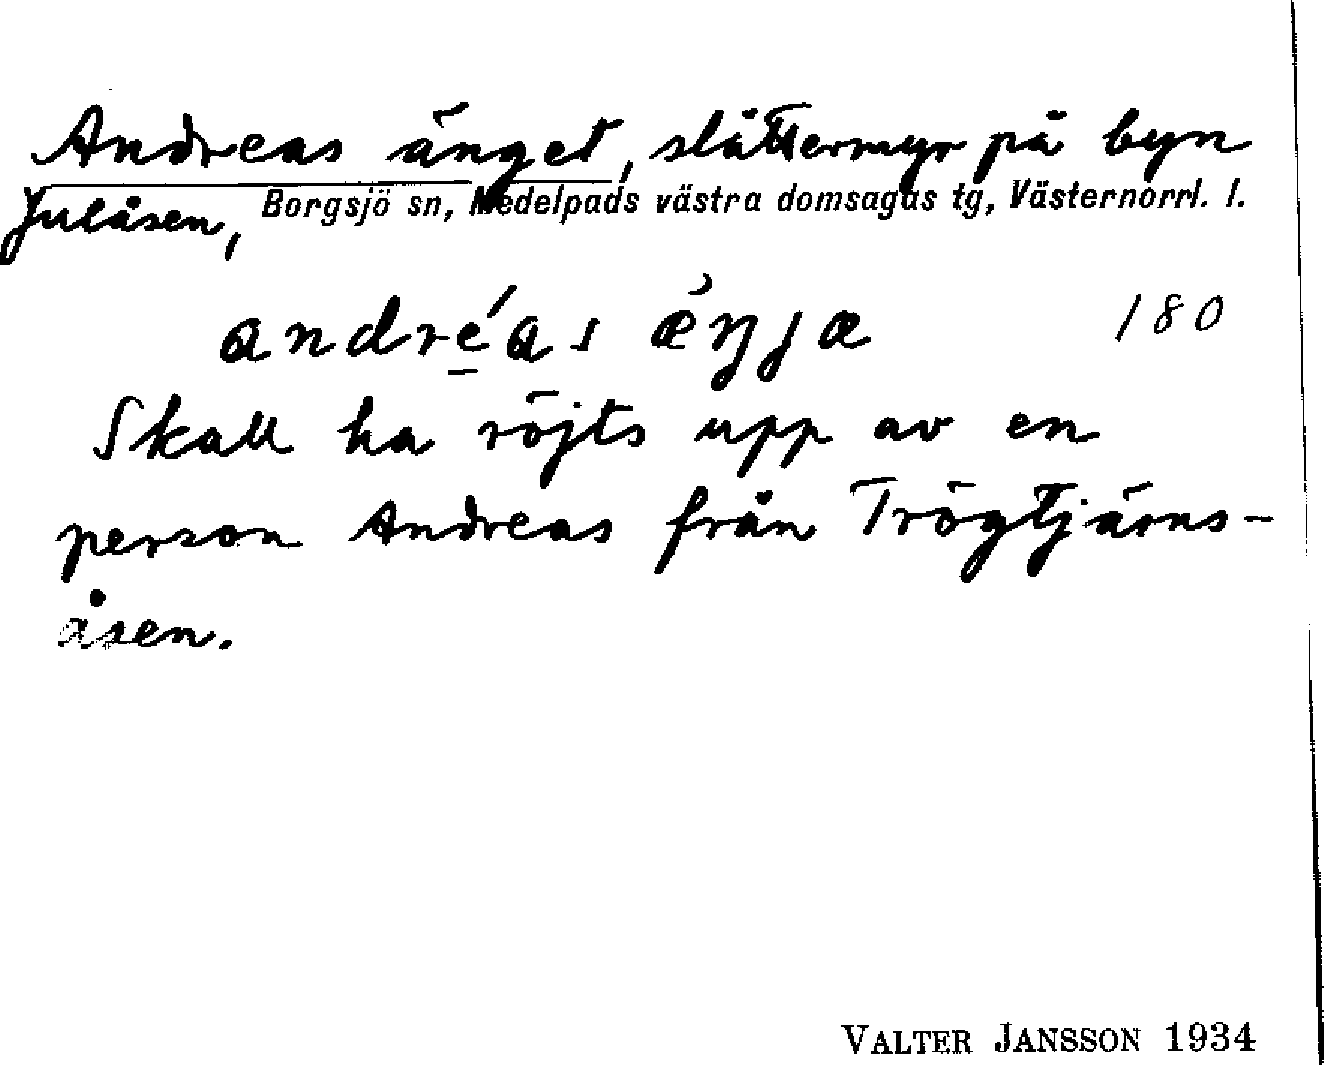 Andreas änget, slåttermyr på byn
Julåsen, Borgsjö sn, Medelpads västra domsagas tg, Västernorrl. l.
andré̱as æ̀ŋjæ 180
Skall ha röjts upp av en
person Andreas från Trögtjärns-
åsen.
VALTER JANSSON 1934